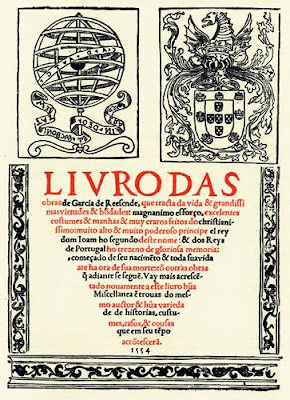 LIVRO DAS
obras de Garcia de Resende, que tracta da vida & grandissi
mas virtudes & bõdades: magnanimo esforço, excelentes
costumes & manhas & muy craros feitos do christiani-
ssimo: muito alto & muito poderoso principe el rey
dom Ioam ho segundo deste nome: & dos Reys
de Portugal ho trezeno de gloriosa memoria:
começado de seu nacimẽto & toda sua vida
ate ha ora de sua morte: cõ outras obras
q̃ adiante se seguẽ. Vay mais acrescẽ-
tado nouamente a este liuro hũa
Miscellanea ẽ trouas do mes-
mo auctor & hũa varieda
de de historias, custu-
mes, casos, & cousas
que em seu tẽpo
accõtescerã.
1554